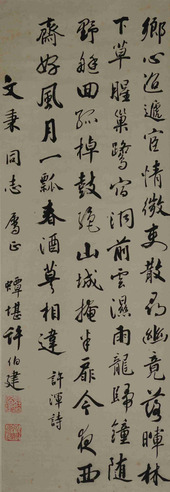 鄉心迢遞宦情微吏散尋幽竟落暉林
下草腥巢鷺宿洞前雲濕雨龍歸鐘隨
野艇回孤棹鼓絕山城掩半扉今夜西
齋好風月一瓢春酒莫相違 許渾詩
文秉同志屬正 蟫堪許伯建